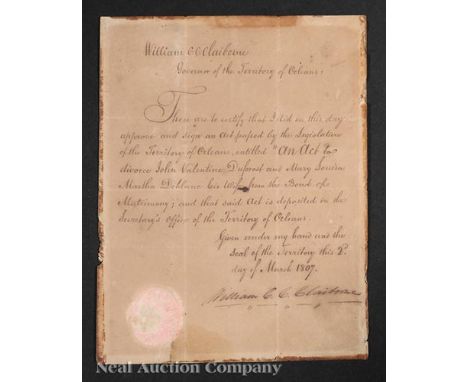 William C. C. Claiborne
Governor of the Territory of Orleans;
These are to certify that I did on this day
approve and sign an Act passed by the Legislature
of the Territory of Orleans, entitled "An Act to
divorce John Valentine Dufrost and Mary Louisa
Martha Deblanc his Wife from the Bonds of
Matrimony; and that said Act is deposited in the
Secretary's Office of the Territory of Orleans.
Given under my hand and the
Seal of the Territory this 2d
day of March 1807.
William C. C. Claiborne
Neal Auction Company